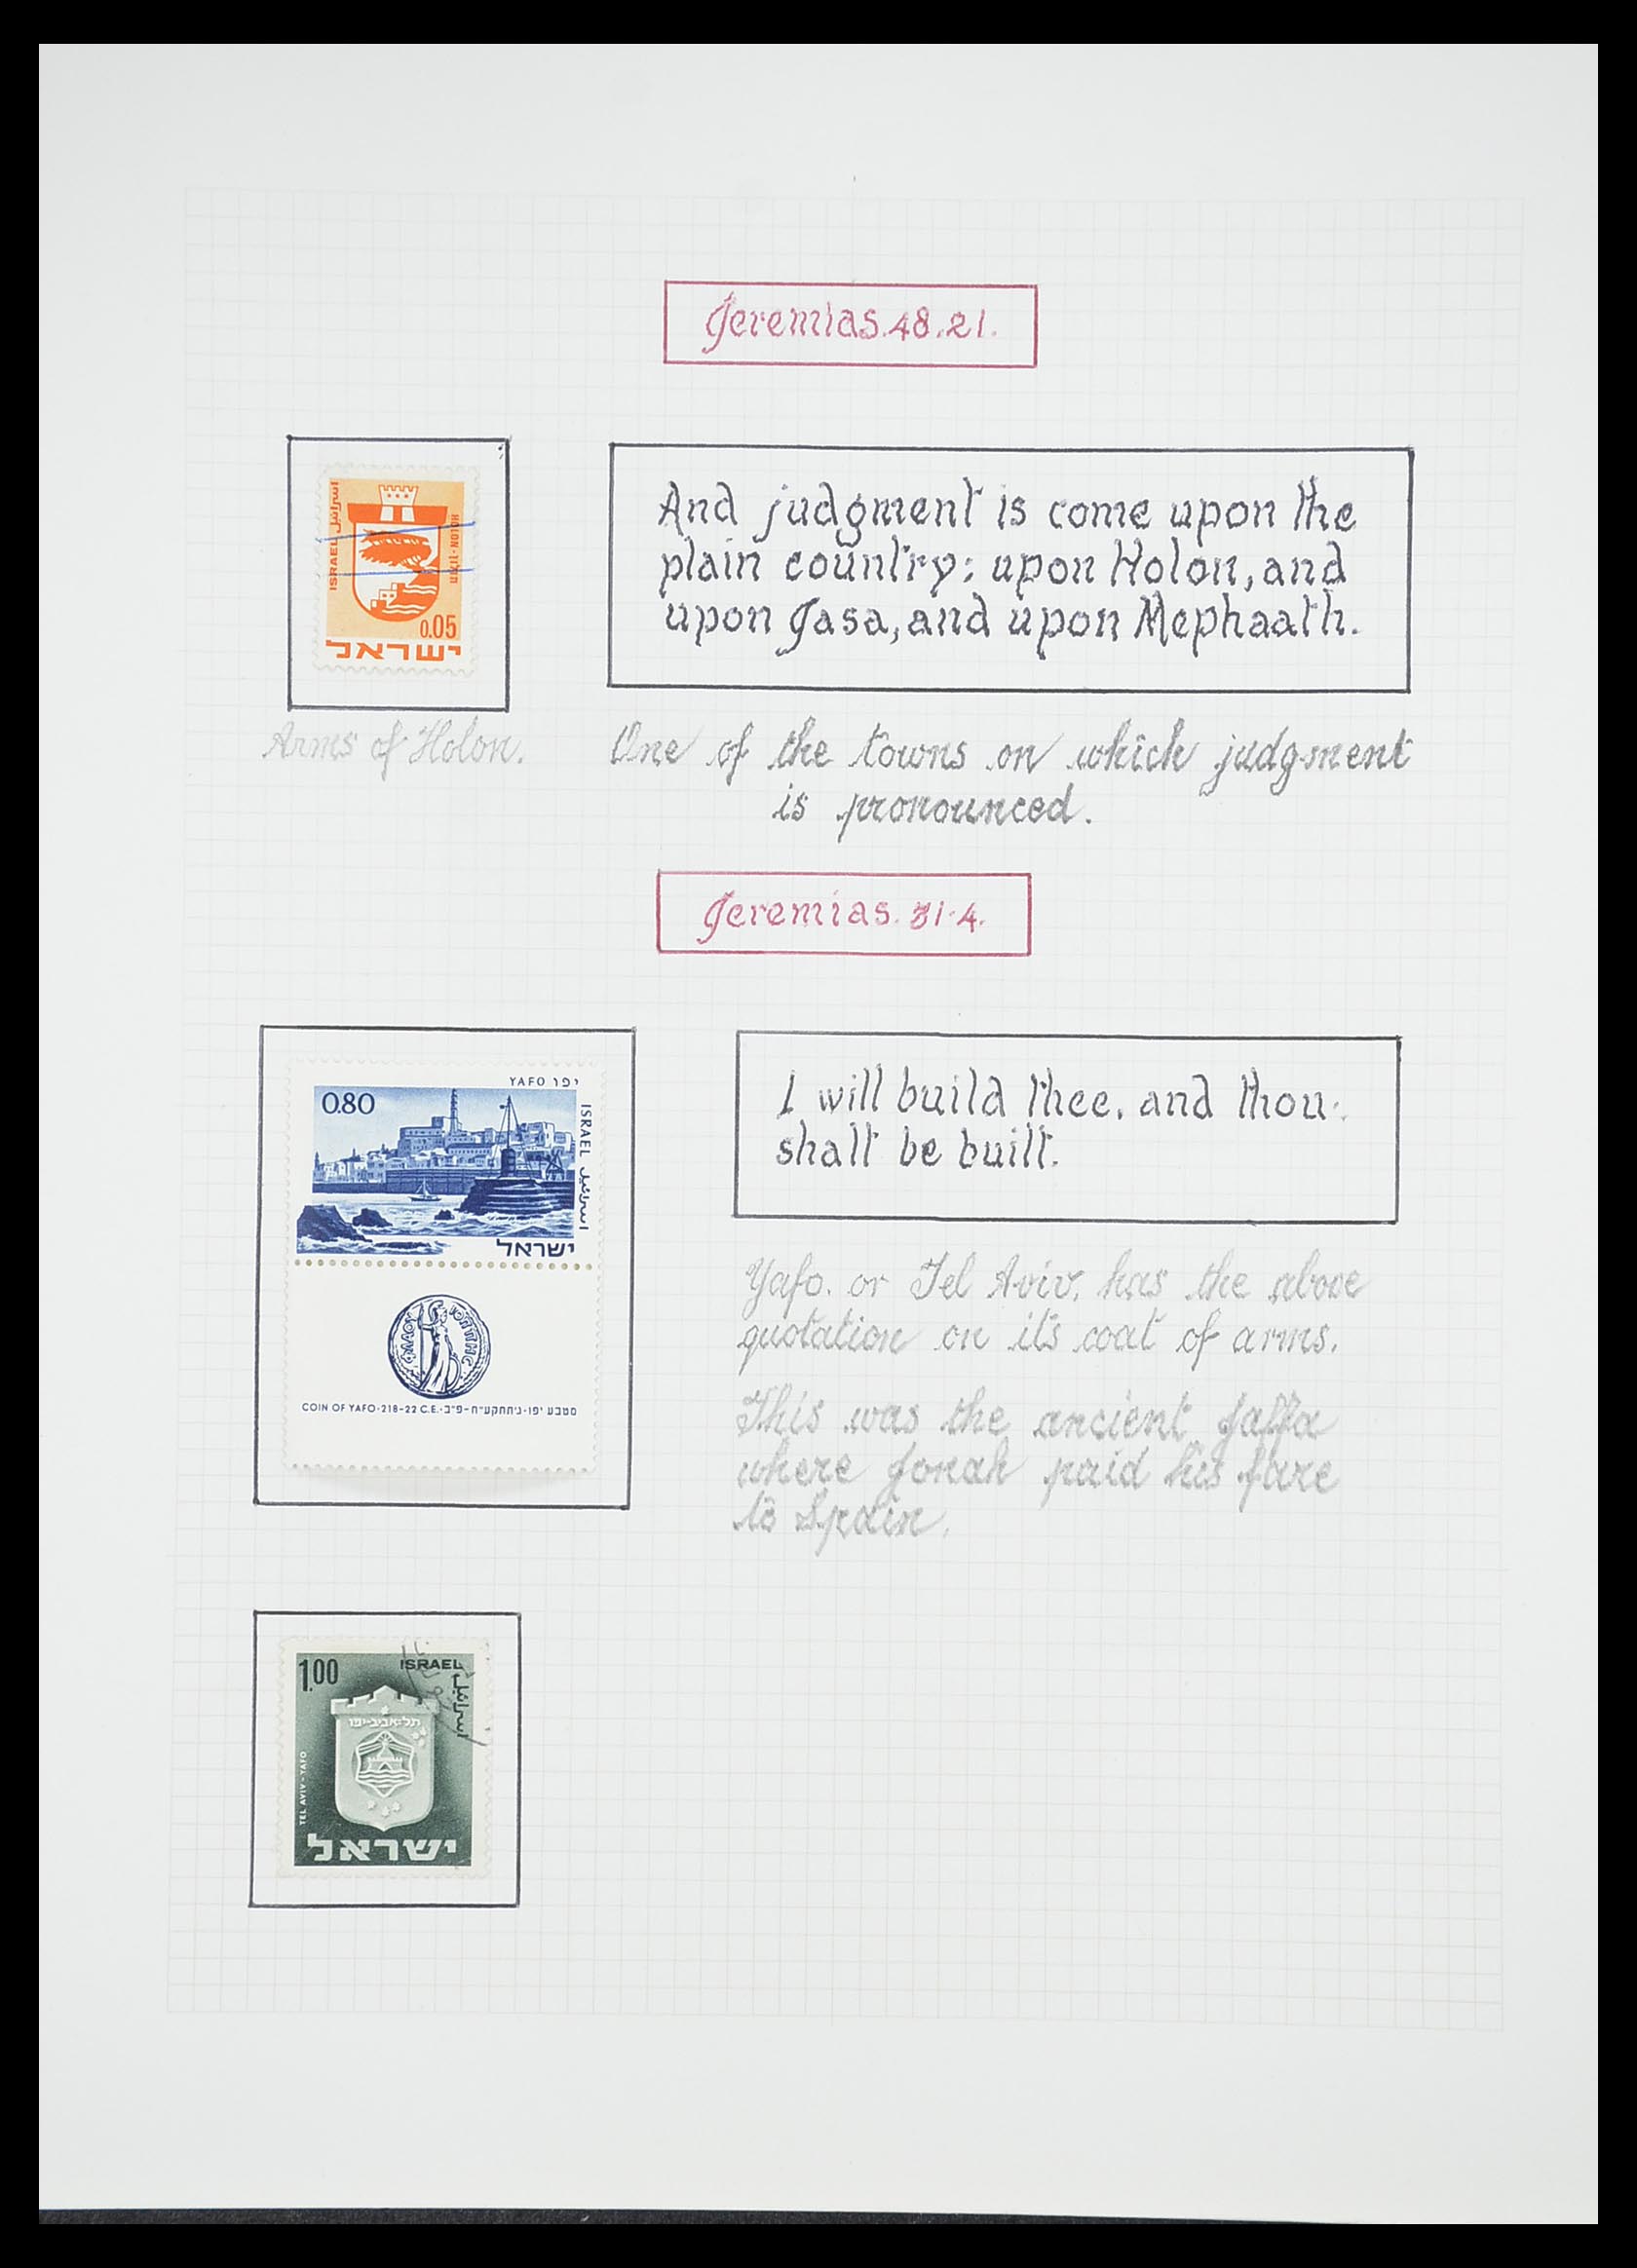 Jeremias.48.21.
اسرائيل
ISRAEL
HOLON · חולון
0.05
ישראל
And judgment is come upon the
plain country: upon Holon, and
upon Jasa, and upon Mephaath.
Arms of Holon.
One of the towns on which judgment
is pronounced.
Jeremias. 31.4.
YAFO יפו
0.80
ISRAEL
اسرائيل
ישראל
ΦΛΑΟΥ
ΙΟΠΠΗC
COIN OF YAFO·218-22 C.E.·מטבע יפו·ג׳תתקע״ח-פ״ב
I will build thee, and thou
shalt be built.
Yafo. or Tel Aviv, has the above
quotation on it's coat of arms.
This was the ancient Jaffa
where Jonah paid his fare
to Spain.
1.00
ISRAEL
اسرائيل
תל-אביב-יפו
TEL AVIV - YAFO
ישראל